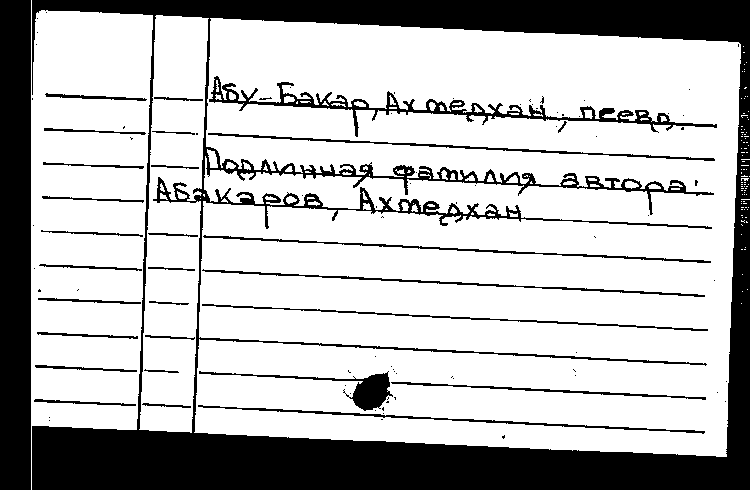 Абу-Бакар, Ахмедхан, псевд.
Подлинная фамилия автора:
Абакаров, Ахмедхан